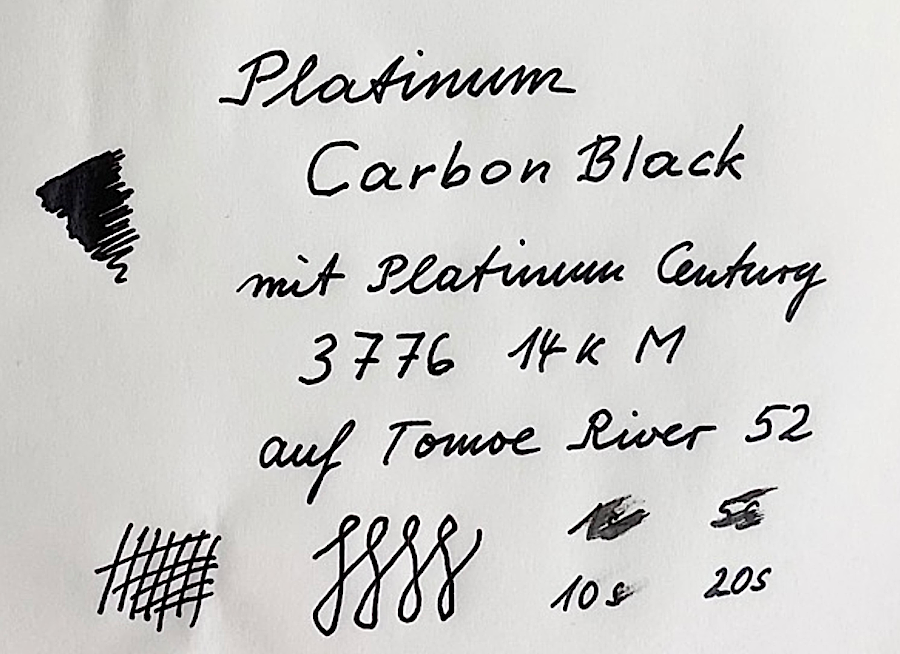 Platinum
Carbon Black
mit Platinum Century
3776 14K M
auf Tomoe River 52
1s 5s
10s 20s